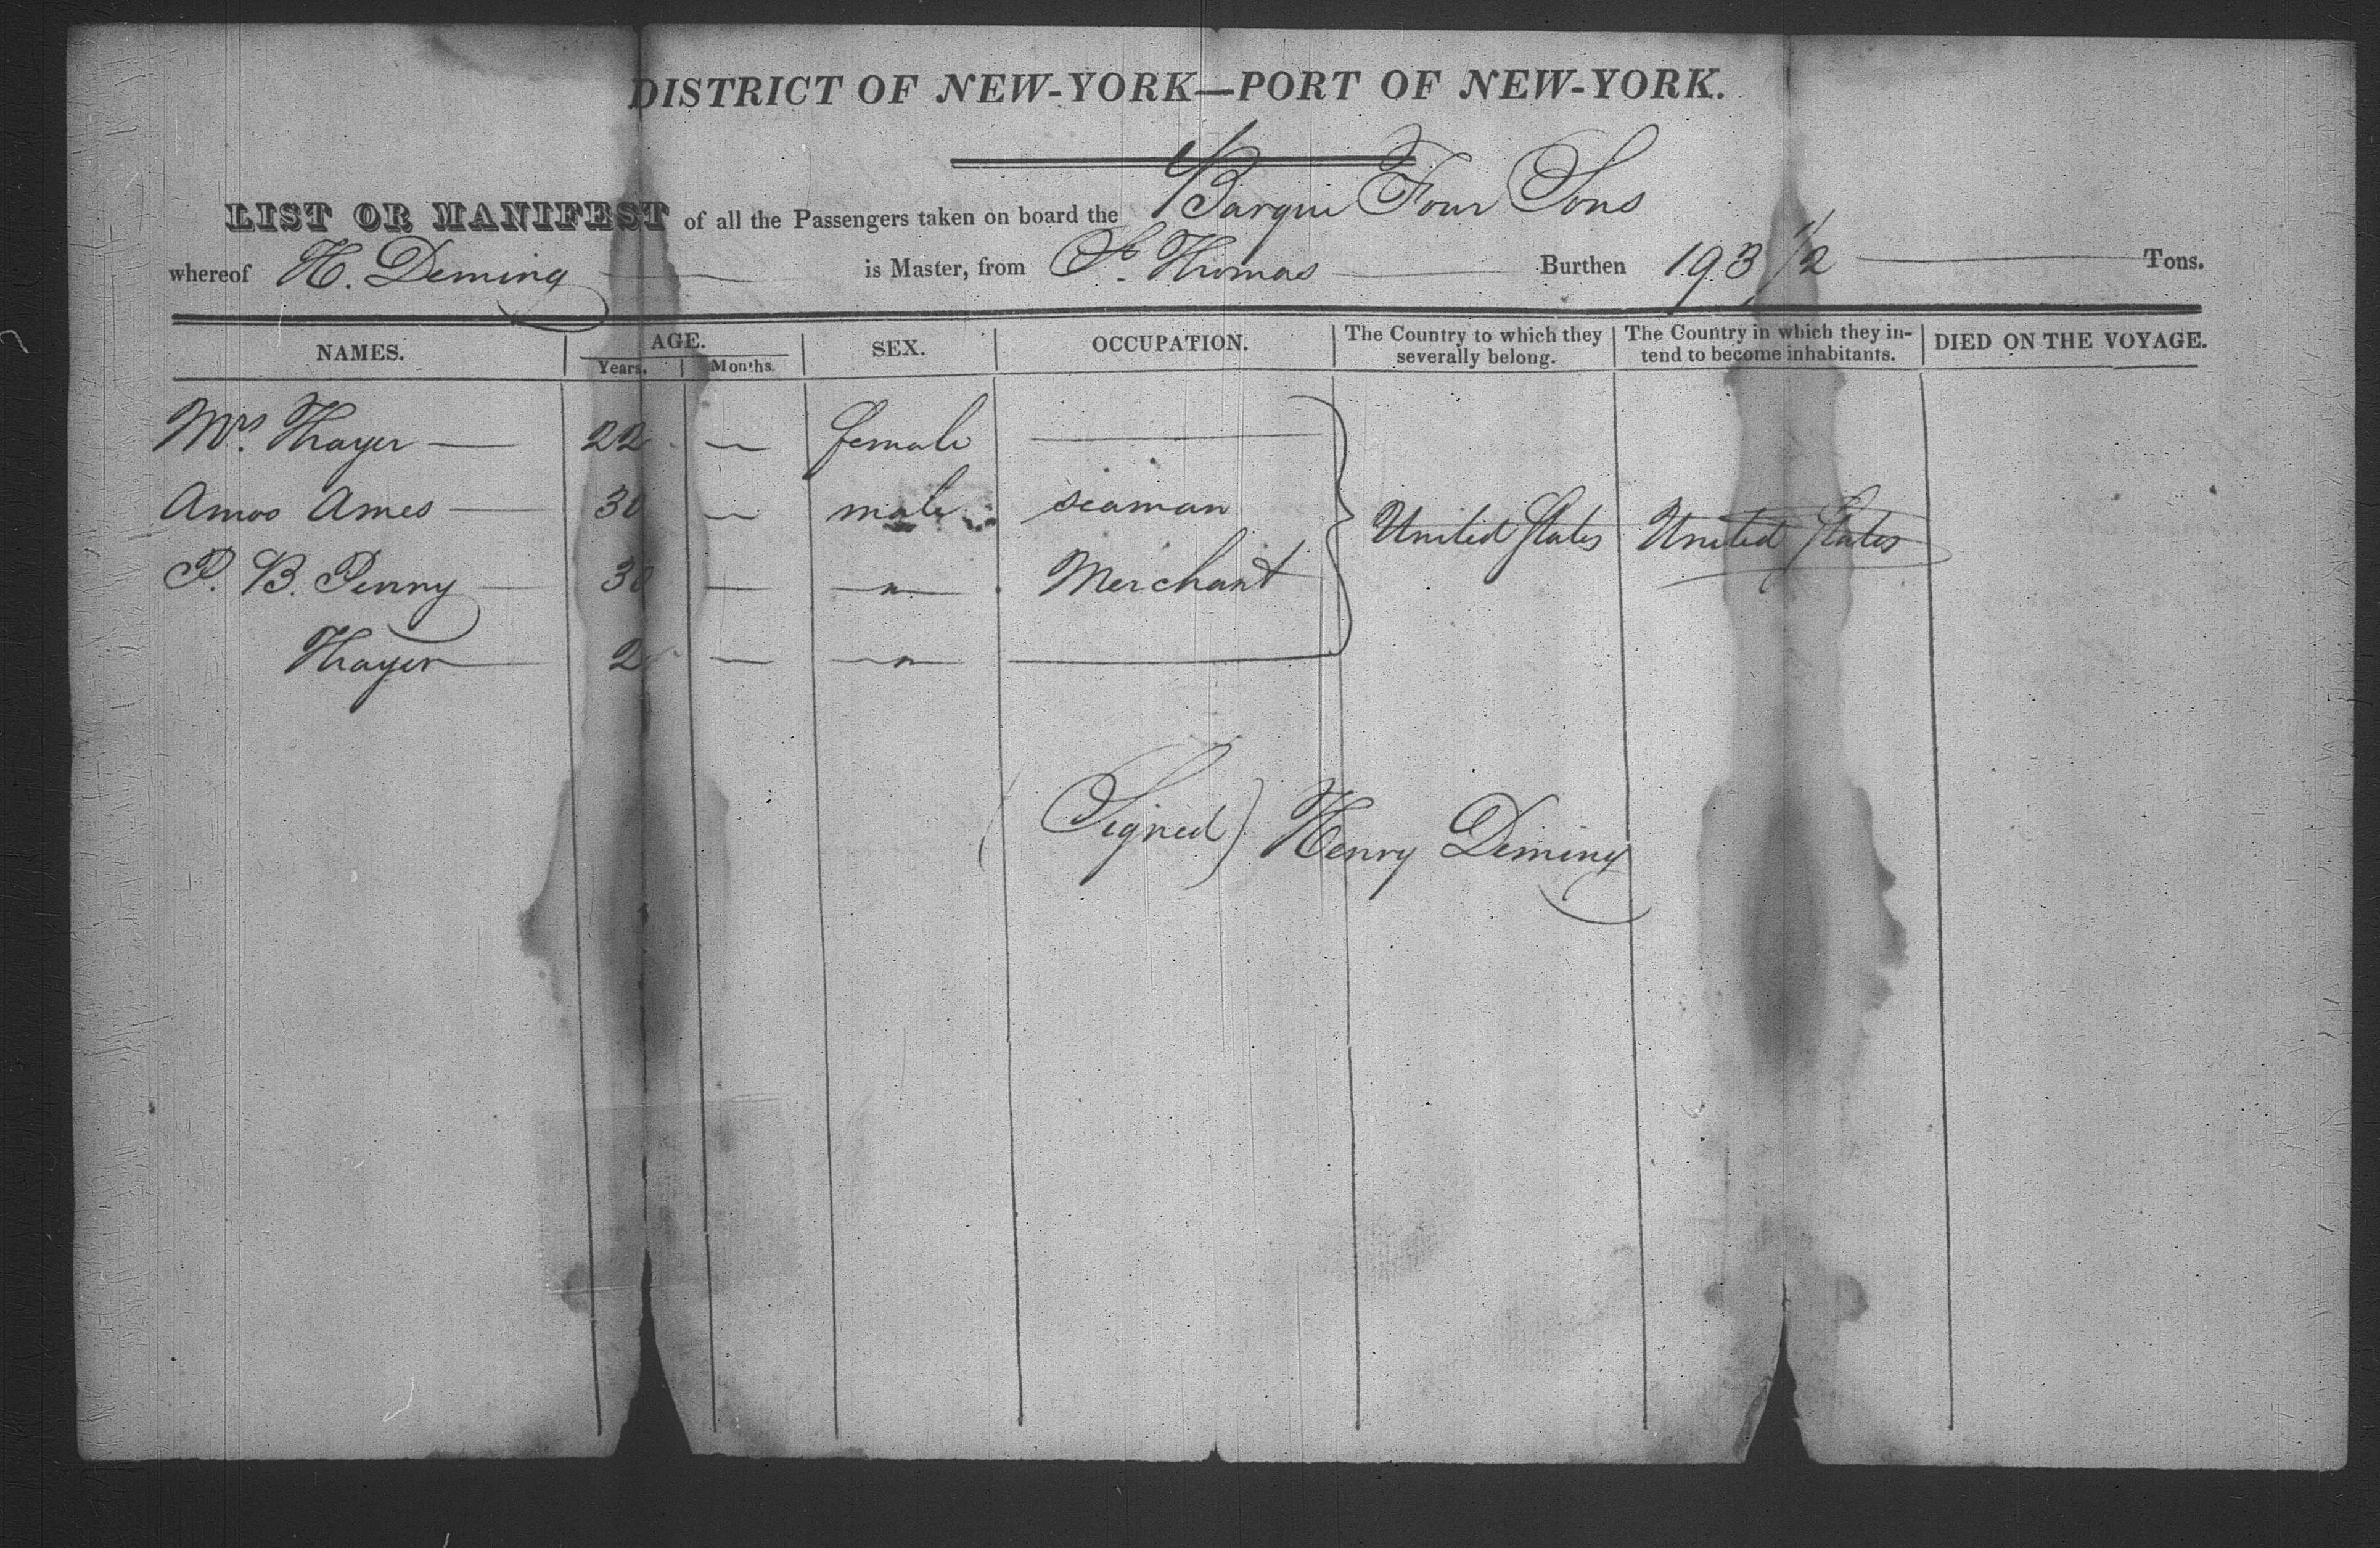 DISTRICT OF NEW-YORK—PORT OF NEW-YORK.
LIST OR MANIFEST of all the Passengers taken on board the Barque Four Sons
whereof H. Deming is Master, from St. Thomas Burthen 193 1/2 Tons.
NAMES. AGE. Years. Months. SEX. OCCUPATION. The Country to which they severally belong. The Country in which they intend to become inhabitants. DIED ON THE VOYAGE.
Mrs. Thayer — 22 — female —
Amos Ames — 30 — male seaman
United States United States
P. B. Penny — 30 — —"— Merchant
Thayer — — —"— —
(Signed) Henry Deming